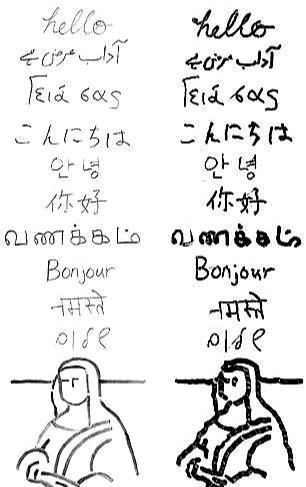 hello hello
آداب عرض ہے آداب عرض ہے
Γειά σας Γειά σας
こんにちは こんにちは
안녕 안녕
你好 你好
வணக்கம் வணக்கம்
Bonjour Bonjour
नमस्ते नमस्ते